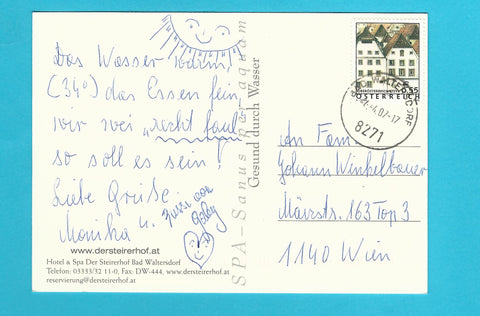 Das Wasser warm!
(34°) das Essen fein,
wir zwei „recht faul"
so soll es sein!
Liebe Grüße
Monika u.
Bussi von
www.dersteirerhof.at
Hotel & Spa Der Steirerhof Bad Waltersdorf
Telefon: 03333/32 11-0, Fax: DW-444, www.dersteirerhof.at
reservierung@dersteirerhof.at
SPA-Sanus per aquam
Gesund durch Wasser
0,55
ÖSTERREICH
8271
An Fam.
Johann Winkelbauer
Märzstr. 163 Top 3
1140 Wien